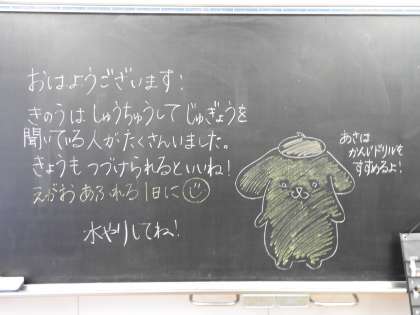 おはようございます!
きのうは しゅうちゅうして じゅぎょうを
聞いている人が たくさんいました。
きょうも つづけられるといいね!
えがお あふれる1日に
水やりしてね!
あさは
かん字ドリルを
すすめるよ!